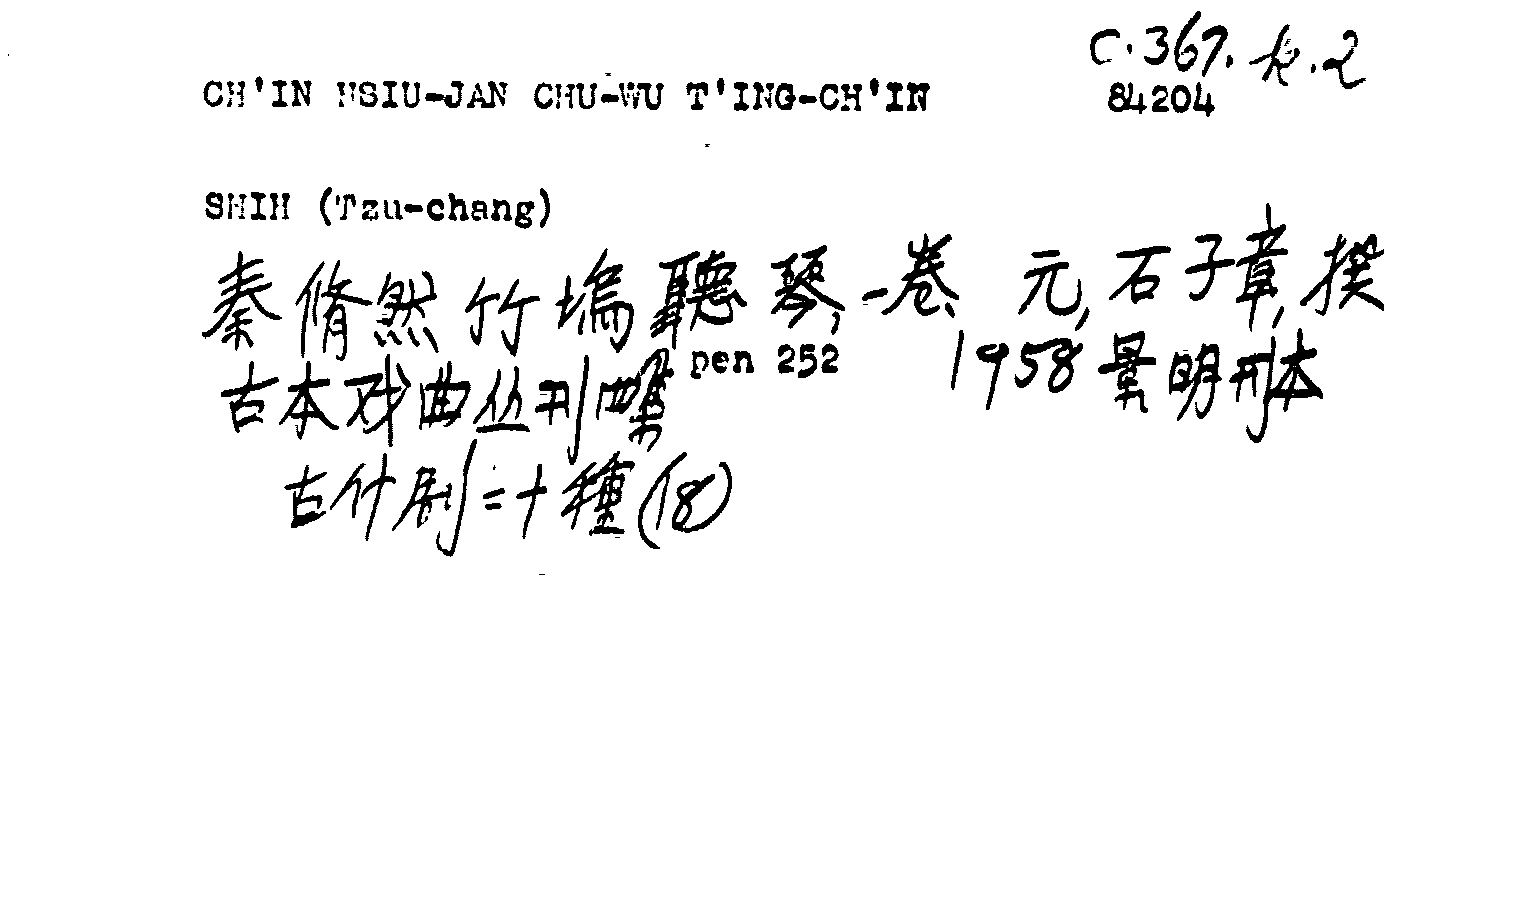 C.367.k.2
CH'IN HSIU-JAN CHU-WU T'ING-CH'IN 84204
SHIH (Tzu-chang)
秦脩然竹塢聽琴, 一卷, 元, 石子章, 撰
古本戏曲丛刊四集 pen 252 1958 景明刊本
古什劇二十種 (18)